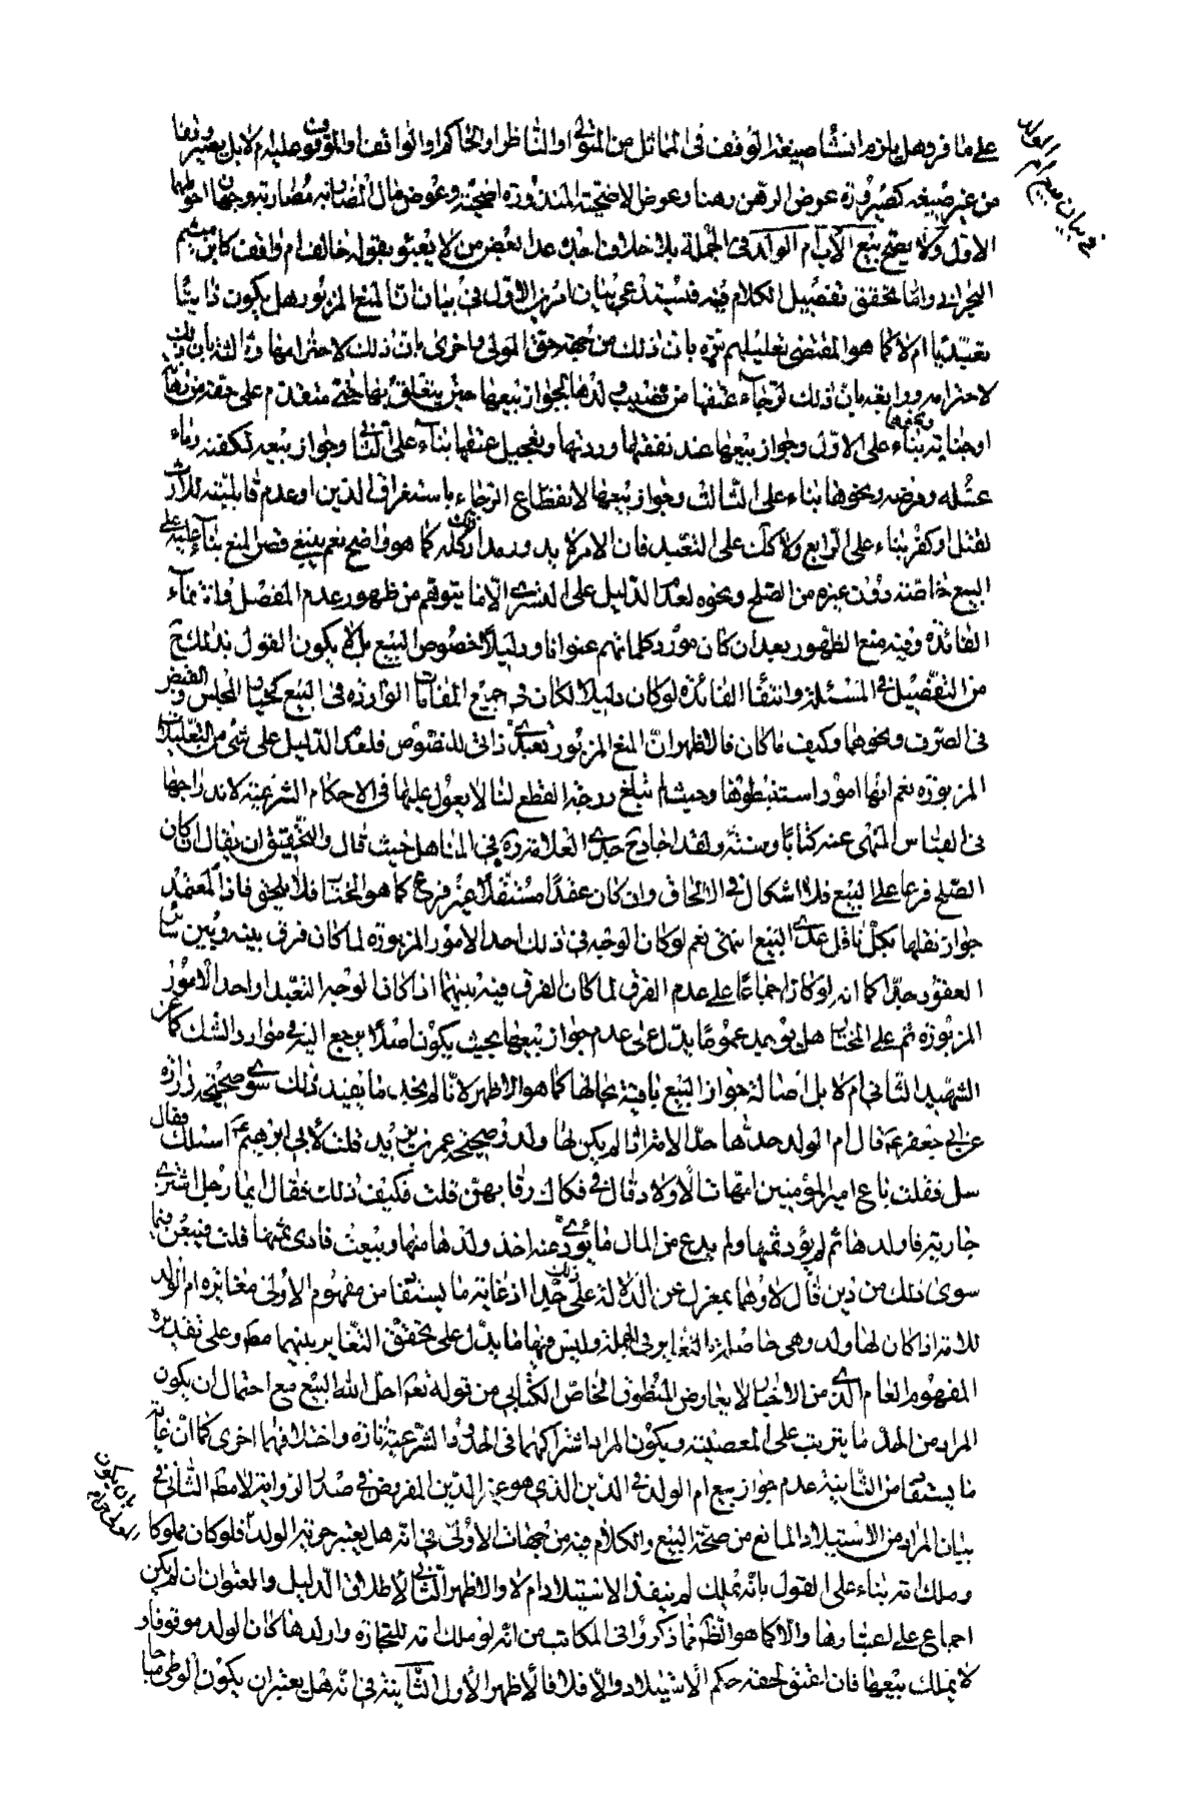 في بيان بيع ام الولد
على ما قر وهل يلزم انشا صيغة الوقف في المماثل من المتولى او الناظر او الحاكم او الواقف او الموقوف عليه ام لا بل يعتبر وقفا
من غير صيغه كصيرورة عوض الرهن رهنا وعوض الاضحية المنذورة اضحية وعوض مال المضاربه مضاربة وجهان احوطهما
الاول ولا يصح بيع الام ام الولد في الجملة بلا خلاف اجده عدا بعض من لا يعبئو بقوله خالف ام وافق كابن ميثم
البحراني واما تحقيق تفصيل الكلام فيه فيستدعي بيان امور الاول في بيان ان المنع المزبور هل يكون ذاتيا
تعبديا ام لا كما هو المقتضى تعليلهم تره بان ذلك من جهة حق المولى واخرى بان ذلك لاحترامها وثالثة بان ذلك
لاحترامه ورابعه بان ذلك لرجاء عتقها من نصيب ولدها لجواز بيعها حين يتعلق بها حق متقدم على حقه من رهانة
او جناية بناء على الاول وجواز بيعها عند نفقتها وردتها وتعجيل عتقها بناء على الثاني وجواز بيعه لكفنه وماء
غسله ومرضه ونحوها بناء على الثالث وجواز بيعها لانقطاع الرجاء باستغراق الدين او عدم قابليته للارث
لقتل او كفر بناء على الرابع ولا كك على التعبد فان الامر لا يدور مدار ذلك كله كما هو واضح نعم ينبغي قصر المنع بناء عليه على
البيع خاصة دون غيره من الصلح ونحوه لعدم الدليل على التسري الا ما يتوهم من ظهور عدم المفصل وانتفاء
الفائدة وفيه منع الظهور بعد ان كان مورد كلماتهم عنوانا ودليلا خصوص البيع بل لا يكون القول بذلك ح
من التفصيل في المسئلة وانتفاء الفائدة لو كان دليلا لكان في جميع المقامات الواردة في البيع كخيار المجلس والقبض
في الصرف ونحوهما وكيف ما كان فالاظهر ان المنع المزبور تعبدي ذاتي للنصوص فلعدم الدليل على شئ من التعليلات
المزبورة نعم انها امور استنبطوها وحيث لم تبلغ درجة القطع لنا لا يعول عليها في الاحكام الشرعية لاندراجها
في القياس المنهى عنه كتابا وسنة ولقد اجاد ح جدي العلامة ره في المناهل حيث قال والتحقيق ان يقال ان كان
الصلح فرعا على البيع فلا اشكال في الالحاق وان كان عقدا مستقلا غير فرع كما هو المختار فلا يلحق فاذا المعتمد
جواز نقلها بكل ناقل عدى البيع انتهى نعم لو كان الوجه في ذلك احد الامور المزبورة لما كان فرق بينه وبين سائر
العقود جدا كما انه لو كان اجماعا على عدم الفرق لما كان لفرق فيه بينهما اذا كان الوجه التعبد او احد الامور
المزبورة ثم على المختار هل يوجد عموما يدل على عدم جواز بيعها بحيث يكون اصلا يرجع اليه في موارد الشك كما عن
الشهيد الثاني ام لا بل اصالة جواز البيع باقية بحالها كما هو الاظهر لانا لم نجد ما يفيد ذلك سوى صحيحة زرارة
عن ابي جعفر ع قال ام الولد حدها حد الامة اذا لم يكن لها ولد وصحيحة عمر بن يزيد قلت لابي ابرهيم ع اسئلك فقال
سل فقلت باع امير المؤمنين امهات الاولاد قال في فكاك رقابهن قلت فكيف ذلك فقال ايما رجل اشترى
جارية فاولدها ثم لم يؤد ثمنها ولم يدع من المال ما يؤدي عنه اخذ ولدها منها وبيعت فادى ثمنها قلت فيبعن فيما
سوى ذلك من دين قال لا وهما بمعزل عن الدلالة على ذلك جدا اذ غاية ما يستفا من مفهوم الاولى مغايره ام الولد
للامة اذا كان لها ولد وهي حاصلة التغاير في الجملة وليس فيها ما يدل على تحقق التغاير بينهما مط وعلى تقديره
المفهوم العام الذي من الاخبار لا يعارض المنطوق الخاص الكتابي من قوله نعم احل الله البيع مع احتمال ان يكون
المراد من الحد ما يترتب على المعصية ويكون المراد اشتراكهما في الحدود الشرعية تارة واختلافهما اخرى كما ان غاية
ما يستفا من الثانية عدم جواز بيع ام الولد في الدين الذي هو غير الدين المفروض في صدر الرواية لا مطلقا الثاني في
بيان المراد من الاستيلاد المانع من صحة البيع والكلام فيه من جهات الاولى في انه هل يعتبر حرية الولد فلو كان مملوكا
وملك امه بناء على القول بانه يملك لم ينفذ الاستيلاد ام لا والاظهر الثاني لاطلاق الدليل والعنوان ان لم يكن
اجماع على اعتبارها والا كما هو الظاهر مما ذكروا في المكاتب من انه لو ملك امة للتجارة واولدها كان الولد موقوفا و
لا يملك بيعها فان اعتق لحقه حكم الاستيلاد والا فلا فالاظهر الاول الثانية في انه هل يعتبر ان يكون الوطى مباحا
بان يكون